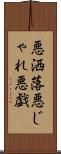 悪洒落悪じ
ゃれ悪戯